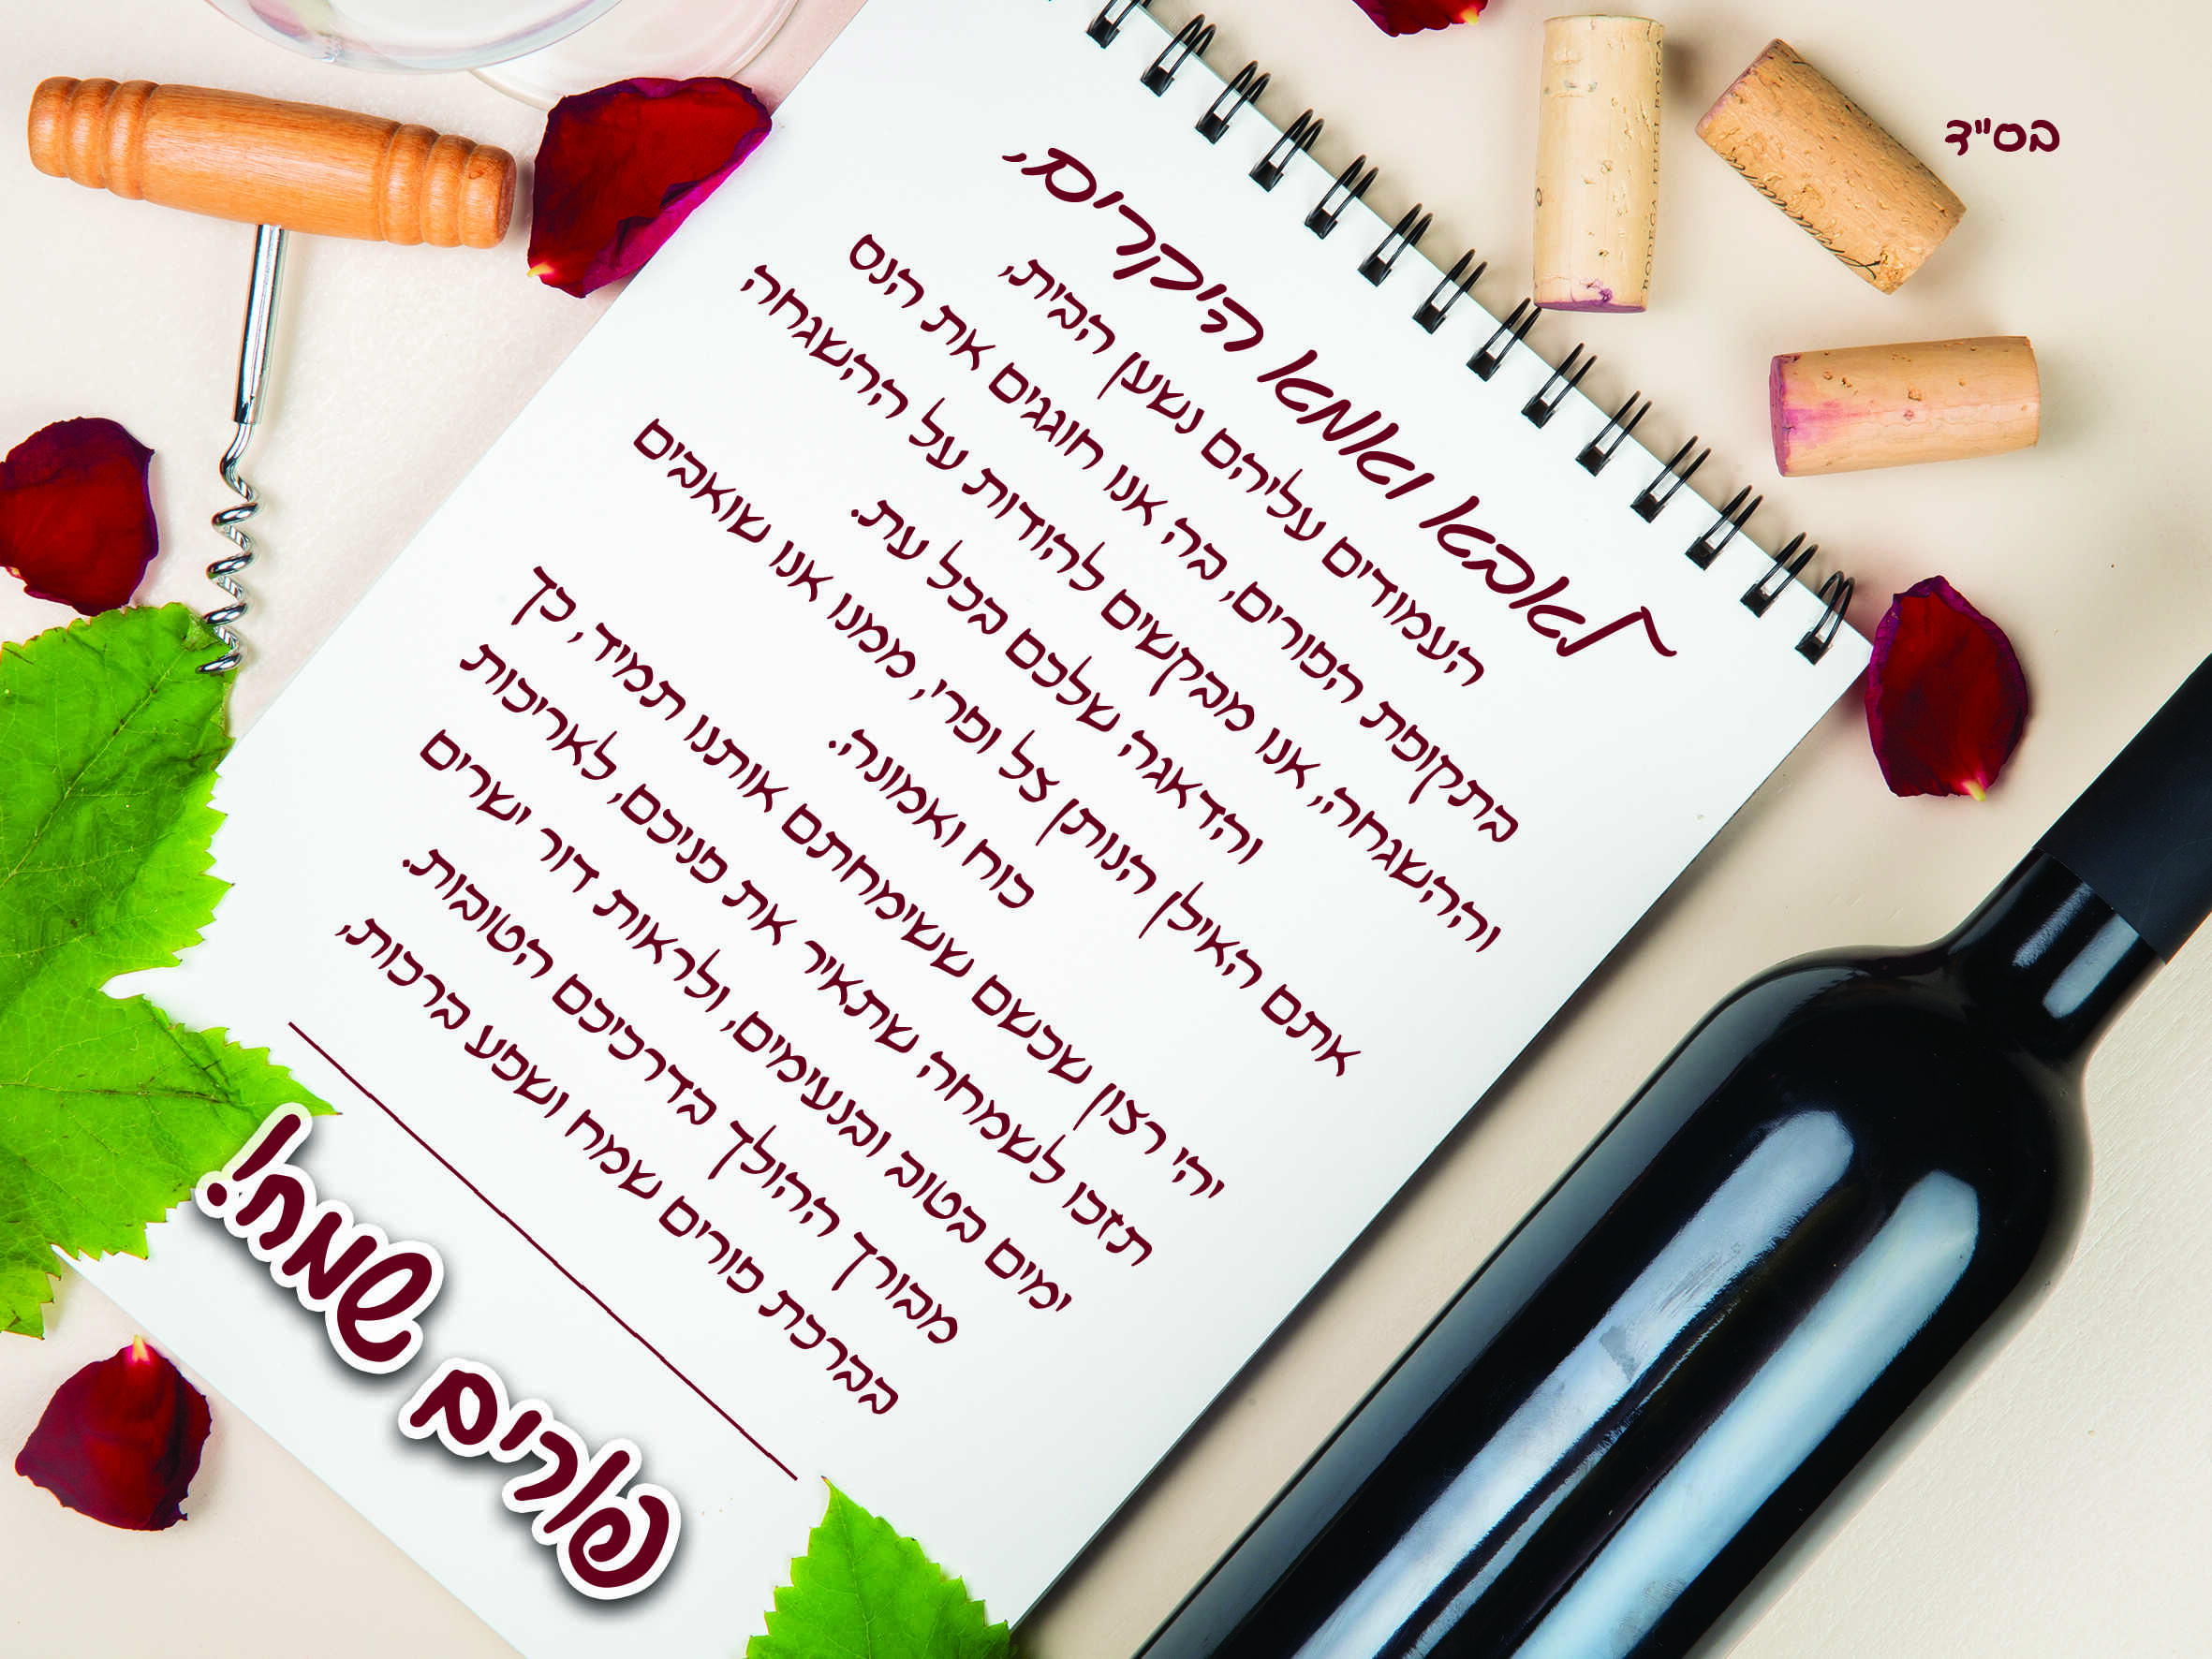 בס"ד
לאבא ואמא היקרים,
העמודים עליהם נשען הבית,
בתקופת הפורים, בה אנו חוגגים את הנס
וההשגחה,, אנו מבקשים להודות על ההשגחה
והדאגה שלכם בכל עת.
אתם האילן הנותן צל ופרי, ממנו אנו שואבים
כוח ואמונה.
יהי רצון שכשם ששימחתם אותנו תמיד, כך
תזכו לשמחה שתאיר את פניכם, לאריכות
ימים בטוב ובנעימים, ולראות דור ישרים
מבורך ההולך בדרכיכם הטובות.
בברכת פורים שמח ושפע ברכות,
פורים שמח!